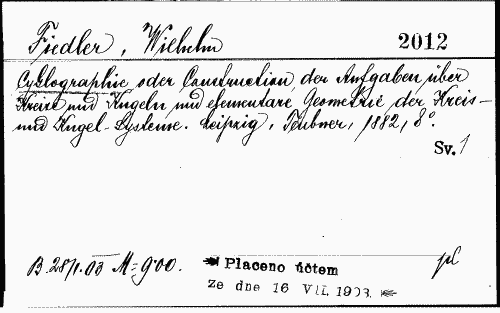 Fiedler, Wilhelm 2012
Cyklographie oder Construction der Aufgaben über
Kreise und Kugeln, und elementare Geometrie der Kreis-
und Kugel-Systeme. Leipzig, Teubner, 1882, 8°.
Sv. 1
B. 28/1. 03 M = 9·00.
Placeno účtem
ze dne 16 VII. 1903.